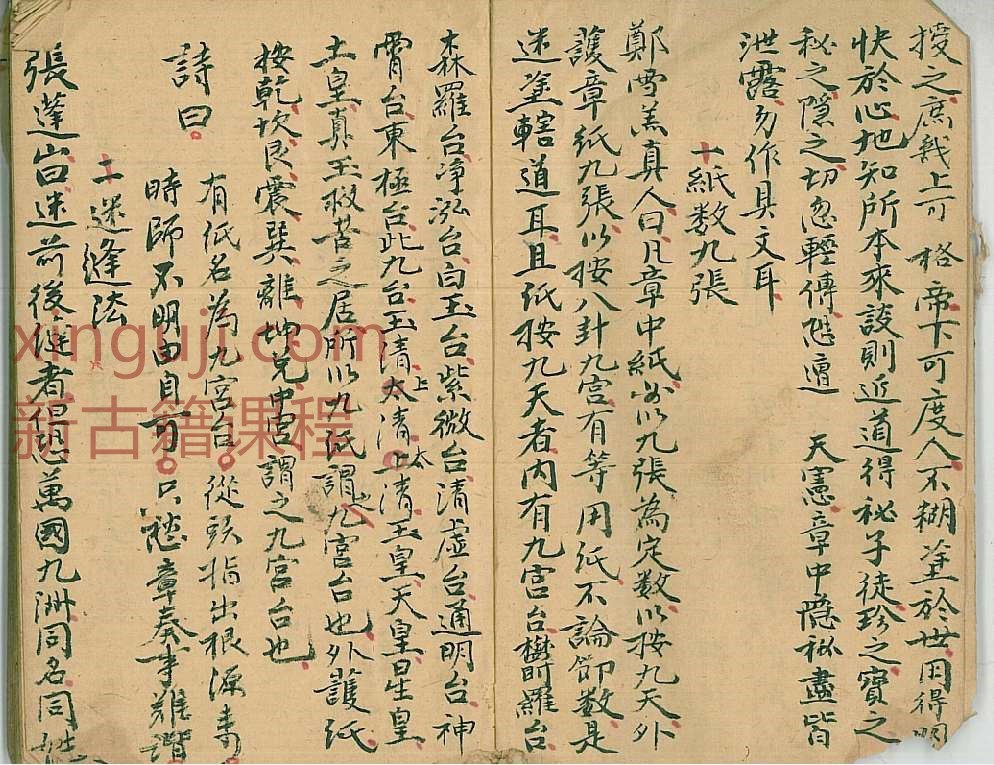 授之庶幾上可 格帝下可度人不糊塗於世用得明
快於心地知所本來設則近道得秘子徒珍之寶之
秘之隱之切忽輕傳恐遭 天憲章中隱秘盡皆
泄露勿作具文耳
十紙数九張
鄭雪羔真人曰凡章中紙必以九張為定数以按九天外
護章紙九張以按八卦九宮有等用紙不論節数是
迷塗轄道耳且纸按九天者内有九宫台欎羅台
森羅台净泓台白玉台紫微台清虚台通明台神
霄台東極台此九台玉清太上清上太清玉皇天皇星皇
土皇真王救苦之居所以九紙謂之九宮台也外護紙
按乾坎艮震巽離坤兌中宮謂之九宮台也
詩曰
有紙名為九宮台從頭指出根源來
時師不明由自可只愁章奏事難諧
二迷縫法
張蓬山曰迷前後縫者得恐萬國九洲同名同姓
xinguji.com
新古籍课程